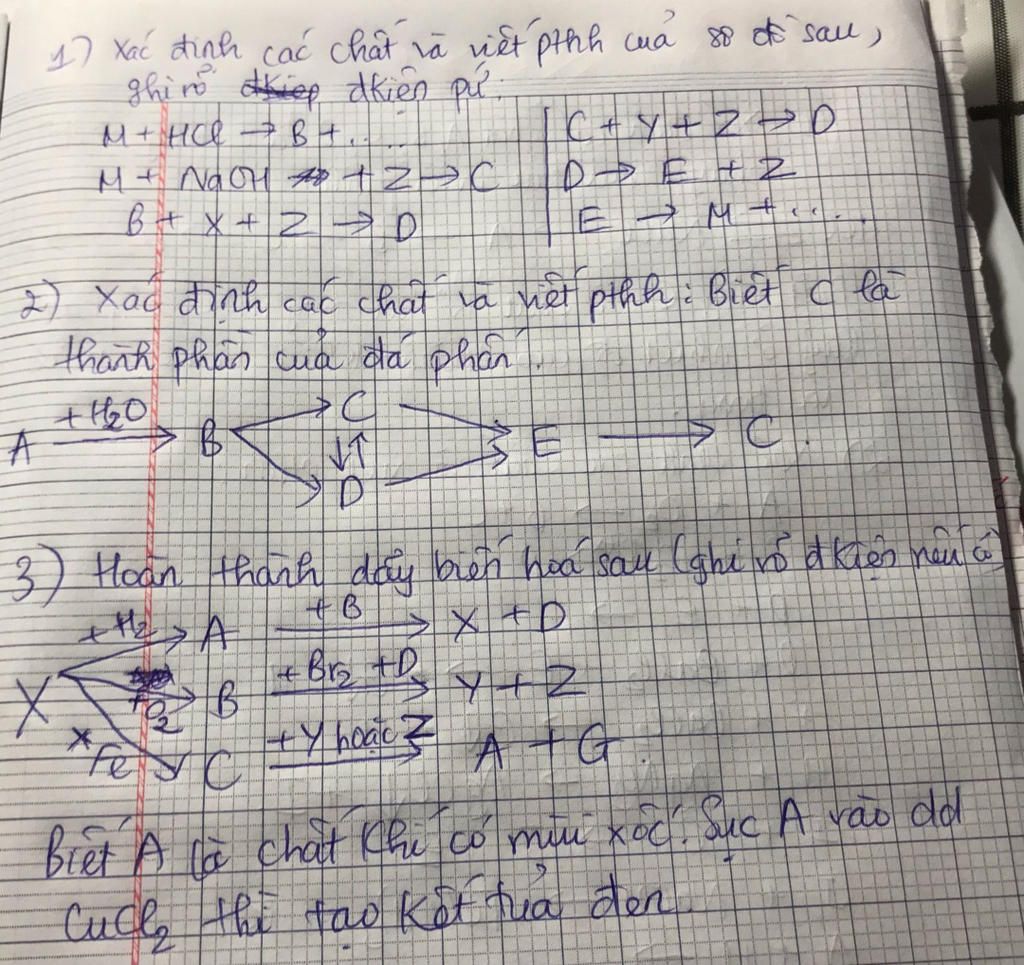 1) Xác định các chất và viết pthh của sơ đồ sau,
ghi rõ đkiện pứ.
M + HCl → B + .....
M + NaOH + Z → C
B + X + Z → D
C + Y + Z → D
D → E + Z
E → M + .....
2) Xác định các chất và viết pthh: Biết C là
thành phần của đá phấn.
+H₂O
C
A → B E → C.
D
3) Hoàn thành dãy biến hoá sau (ghi rõ đkiện nếu có)
+H₂ A +B → X + D
X +O₂ B +Br₂ +D → Y + Z
Fe C +Y hoặc Z → A + G.
Biết A là chất khí có mùi xốc. Sục A vào dd
CuCl₂ thì tạo kết tủa đen.